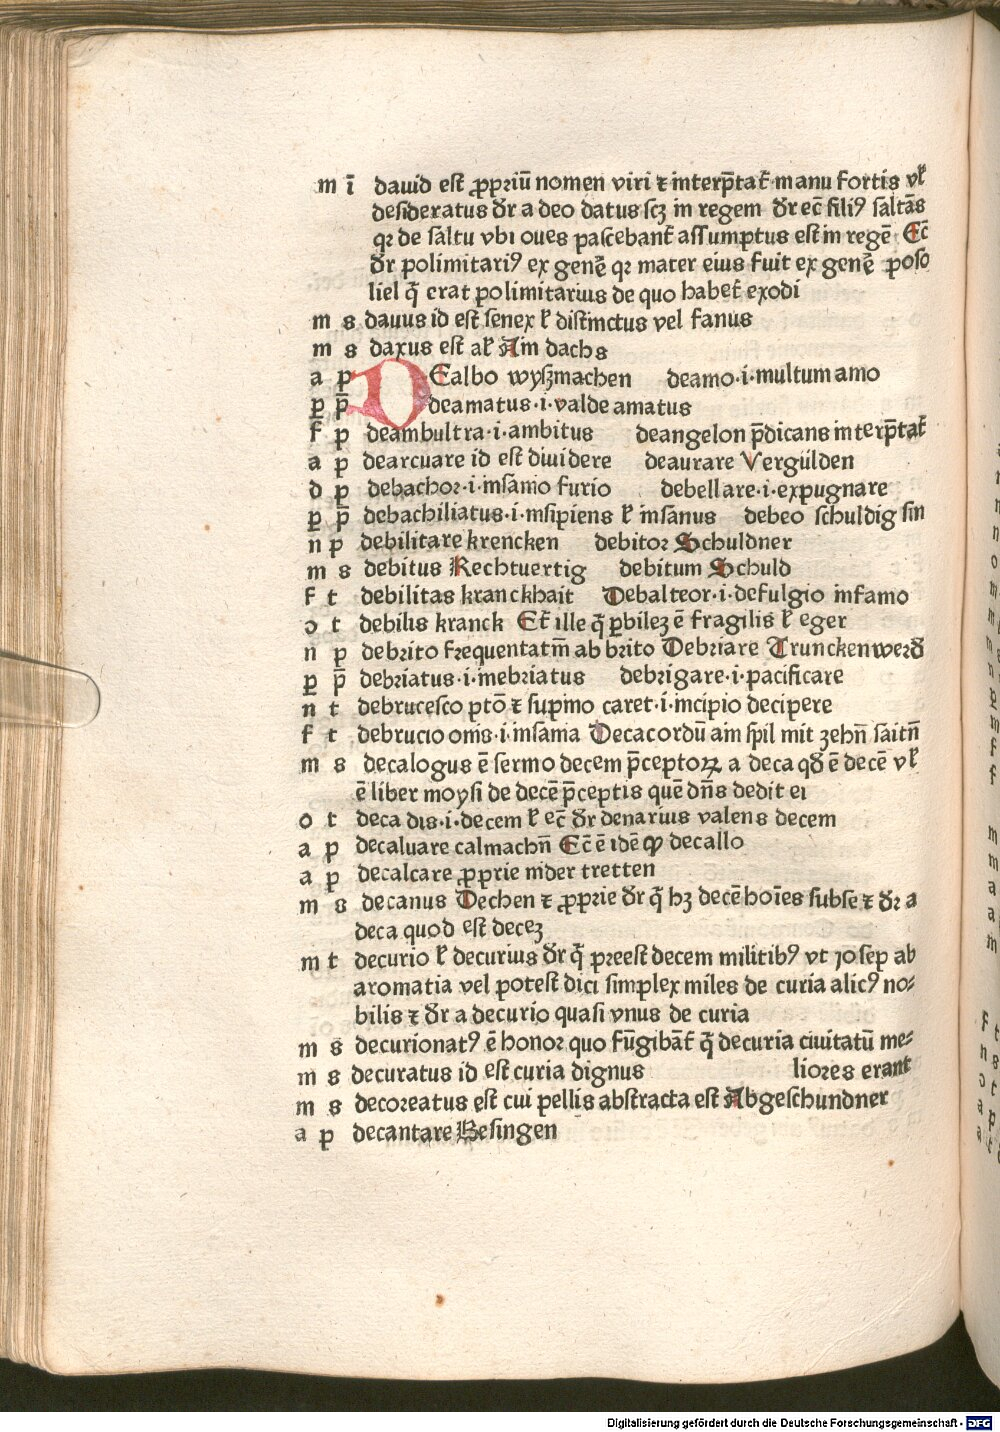 m ī dauid est ꝓpriū nomen viri ⁊ interp̄tat᷑ manu fortis vł
desideratus dr̄ a deo datus scꝫ in regem dr̄ ec̄ filiꝰ saltās
qꝛ de saltu vbi oues pascebant᷑ assumptus est in regē Ec̄
dr̄ polimitariꝰ ex genē qꝛ mater eius fuit ex genē poso
liel q̄ erat polimitarius de quo habet᷑ exodi
m s dauus id est senex ł distinctus vel fanus
m s daxus est aĺ Ain dachs
a p DEalbo wyſzmachen deamo·i·multum amo
p̱ p̄ deamatus·i·valde amatus
f p deambultra·i·ambitus deangelon p̄dicans interp̄tat᷑
a p dearcuare id est diuidere deaurare Vergülden
d p debachoꝛ·i·insanio furio debellare·i·expugnare
p̱ p̄ debachiliatus·i·insipiens ł insanus debeo schuldig sin
n p debilitare krencken debitoꝛ Schuldner
m s debitus Rechtuertig debitum Schuld
f t debilitas kranckhait Debalteor·i·defulgio infamo
ɔ t debilis kranck Et᷑ ille q̄ ꝑbileꝫ ē fragilis ł eger
n p debrito frequentatm̄ ab brito Debriare Trunckenwerd̄
p̱ p̄ debriatus·i·inebriatus debrigare·i·pacificare
n t debrucesco ptō ⁊ supino caret·i·incipio decipere
f t debrucio onis·i·insania Decacordū ain spil mit zehn̄ saitn̄
m s decalogus ē sermo decem p̄ceptoꝝ a deca qd̄ ē decē vł
ē liber moysi de decē p̄ceptis quē dn̄s dedit ei
o t deca dis·i·decem ł ec̄ dr̄ denarius valens decem
a p decaluare calmachn̄ Ec̄ ē idē ꝙ decallo
a p decalcare ꝓprie nider tretten
m s decanus Dechen ⁊ ꝓprie dr̄ q̄ hꝫ decē hoīes sub se ⁊ dr̄ a
deca quod est deceꝫ
m t decurio ł decurius dr̄ q̄ preest decem militibꝰ vt Josep ab
aromatia vel potest dici simplex miles de curia alicꝰ no⸗
bilis ⁊ dr̄ a decurio quasi vnus de curia
m s decurionatꝰ ē honoꝛ quo fūgibāt᷑ q̄ decuria ciuitatū me⸗
m s decuratus id est curia dignus lioꝛes erant
m s decoꝛeatus est cui pellis abstracta est Abgeschundner
a p decantare Besingen
Digitalisierung gefördert durch die Deutsche Forschungsgemeinschaft - DFG